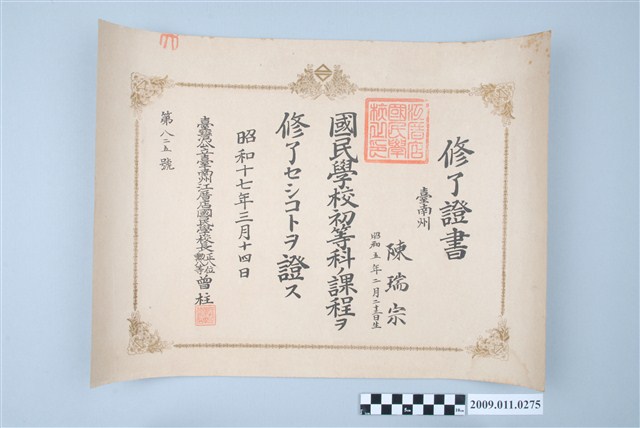 修了證書
臺南州
陳瑞宗
昭和五年二月二十三日生
國民學校初等科ノ課程ヲ
修了セシコトヲ證ス
昭和十七年三月十四日
臺灣公立臺南州江厝店國民學校長正八位勲八等曾柱
第八二五號
江厝店國民學校之印
5cm
10cm
2009.011.0275